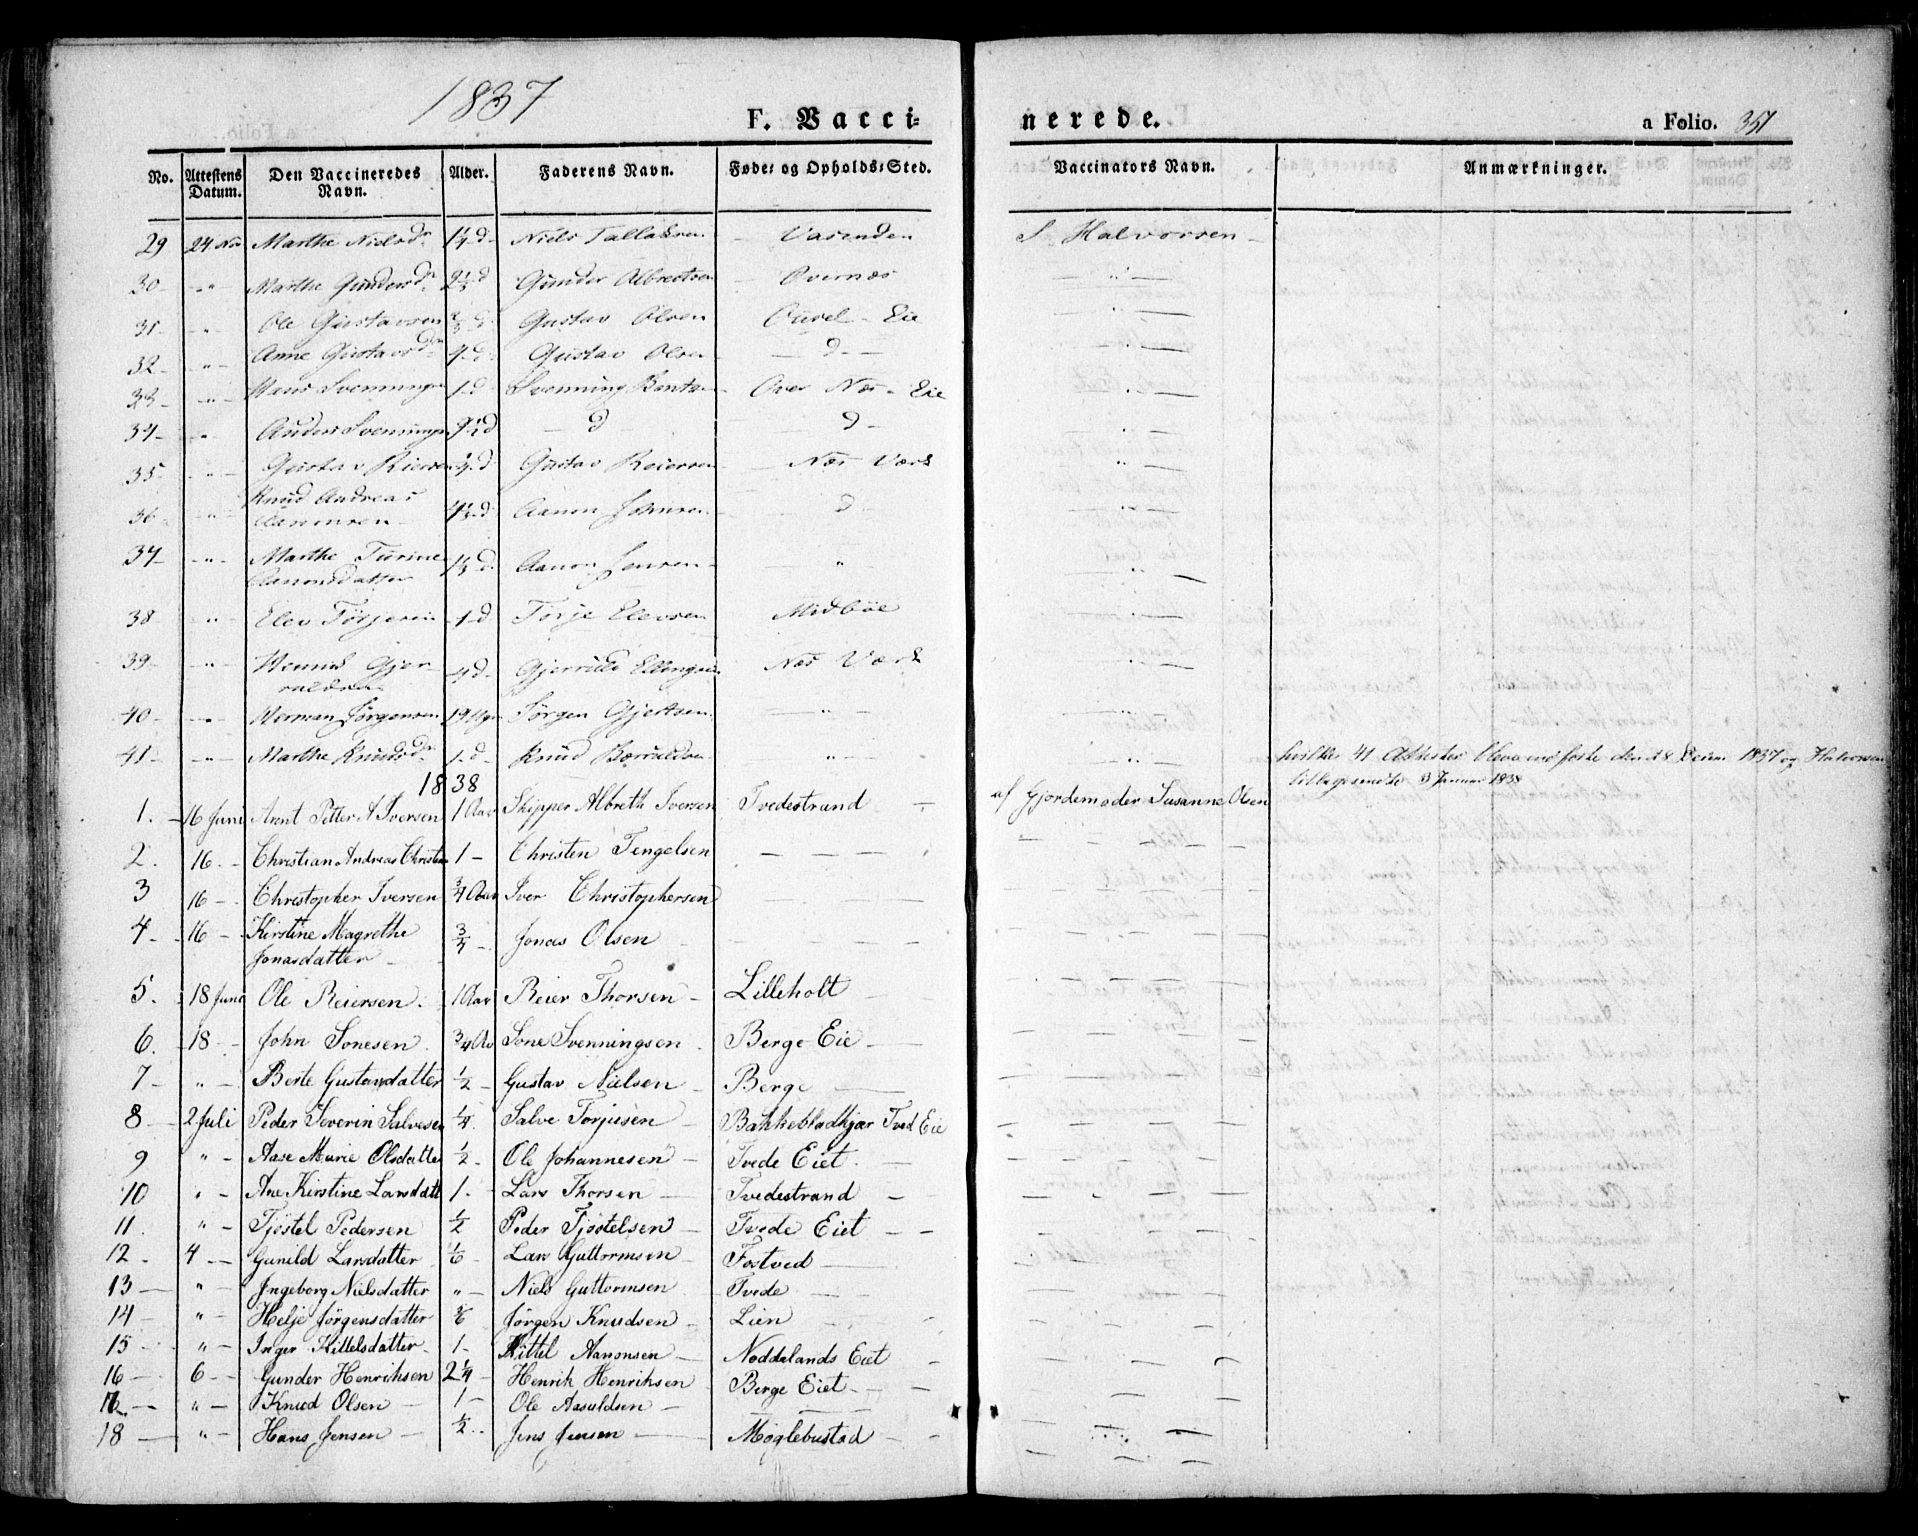 1837
F. Vacci= nerede. a Folio. 351
No. Attestens Datum. Den Vaccineredes Navn. Alder. Faderens Navn. Føde= og Opholds=Sted. Vaccinators Navn. Anmærkninger.
29 24 No Marthe Nielsdr Niels Tallaksen Vasenden S Halvorsen
30 " Marthe Gundersdr Gunder Albretsen Overnæs "
31 " Ole Gustavsen Gustav Olsen Eie "
32 " Anne Gustavsdr Gustav Olsen d "
33 " Hans Svenningsen 1 d Svenning Over Næs Eie "
34 " Anders Svenningsen d d "
35 " Gustav Reiersen Gustav Reiersen Næs Værk "
36 " Knud Andreas
Aanonsen Aanon Jensen d "
37 " Marthe Turine
Aanonsdatter Aanon Jensen " "
38 " Elev Torjesen 1 d Torje Elevsen Midbøe "
39 " Gjer-
ruldsen 4 d Gjerruld Ellingsen Næs Værk "
40 " Herman Jørgensen 19 Jørgen Gjertsen " "
41 " Marthe Knudsdr 1 d Knud " " hvilke 41 Attester 1837 og Halvorsen
tilbagesendte 3 Januar 1838
1838
1. 16 Juni Arnt Petter A Iversen 1 Aar Skipper Albreth Iversen Tvedestrand af Gjordemoder Susanne Olsen
2. 16 Christian Andreas Christen 1 Christen Tengelsen
3 16 Christopher Iversen 3/4 Aar Iver Christophersen
4 16 Kirstine Magrethe
Jonasdatter Jonas Olsen
5. 18 Juni Ole Reiersen 1 Aar Reier Thorsen Lilleholt
6. 18 John Sonesen 3/4 Aar Sone Svenningsen Berge Eie
7 " Berte Gustavdatter 1/2 Gustav Nielsen Berge
8 2 Juli Peder Severin Salvesen 1/4 Salve Torjusen Bakkebladkjær Tved Eie
9 " Aase Marie Olsdatter 1/2 Ole Johannesen Tvede Eiet
10 " Ane Kirstine Larsdatt 1. Lars Thorsen Tvedestrand
11. " Tjøstel Pedersen 1/2 Peder Tjøstelsen Tvede Eiet
12 4 Gunild Larsdatter 1/6 Lars Guttormsen Fostved
13 " Ingeborg Nielsdatter " Niels Guttormsen Tvede
14 " Helje Jørgensdatter Jørgen Knudsen Lien
15 " Inger Kittelsdatter 1 Kittel Aanonsen Noddelands Eiet
16 6 Gunder Henriksen 2 1/4 Henrik Henriksen Berge Eiet
17 " Knud Olsen 1 Ole Aasuldsen
18 " Hans Jensen 1/2 Jens Jensen Møglebustad